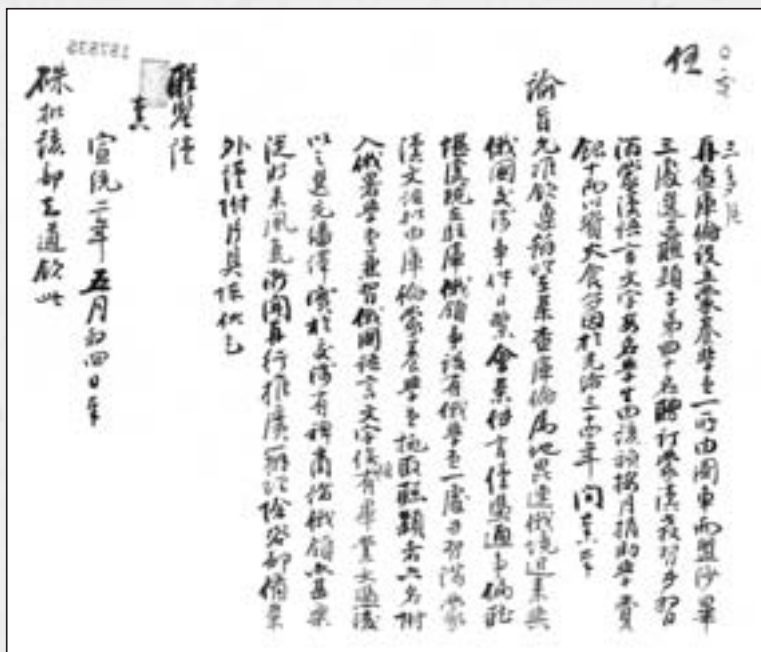 三多片
再查庫倫設立蒙養學堂一所由圖車兩盟沙畢
三處選送聰穎子弟四十名聘訂蒙漢教習分習
滿蒙漢語言文字每名學生由該旗按月捐助學費
銀十兩以資火食當因於光緒三十四年間奏奉
諭旨允准欽遵辦理在案查庫倫屬地毘連俄境近來與
俄國交涉事件日繁會案傳言往還通事偏聽
堪虞現在駐庫俄領事設有俄學堂一處分習滿蒙
漢文語擬由庫倫蒙養學堂挑取聰穎者六名附
入俄署學堂兼習俄國語言文字俟有畢業文過後
以之選充繙譯實於交涉有裨商諸俄領亦甚樂
從將來風氣漸開再行推廣辦理除咨部備案
外謹附片具陳伏乞
聖鑒謹
奏
宣統二年五月初四日奉
硃批該部知道欽此
187835